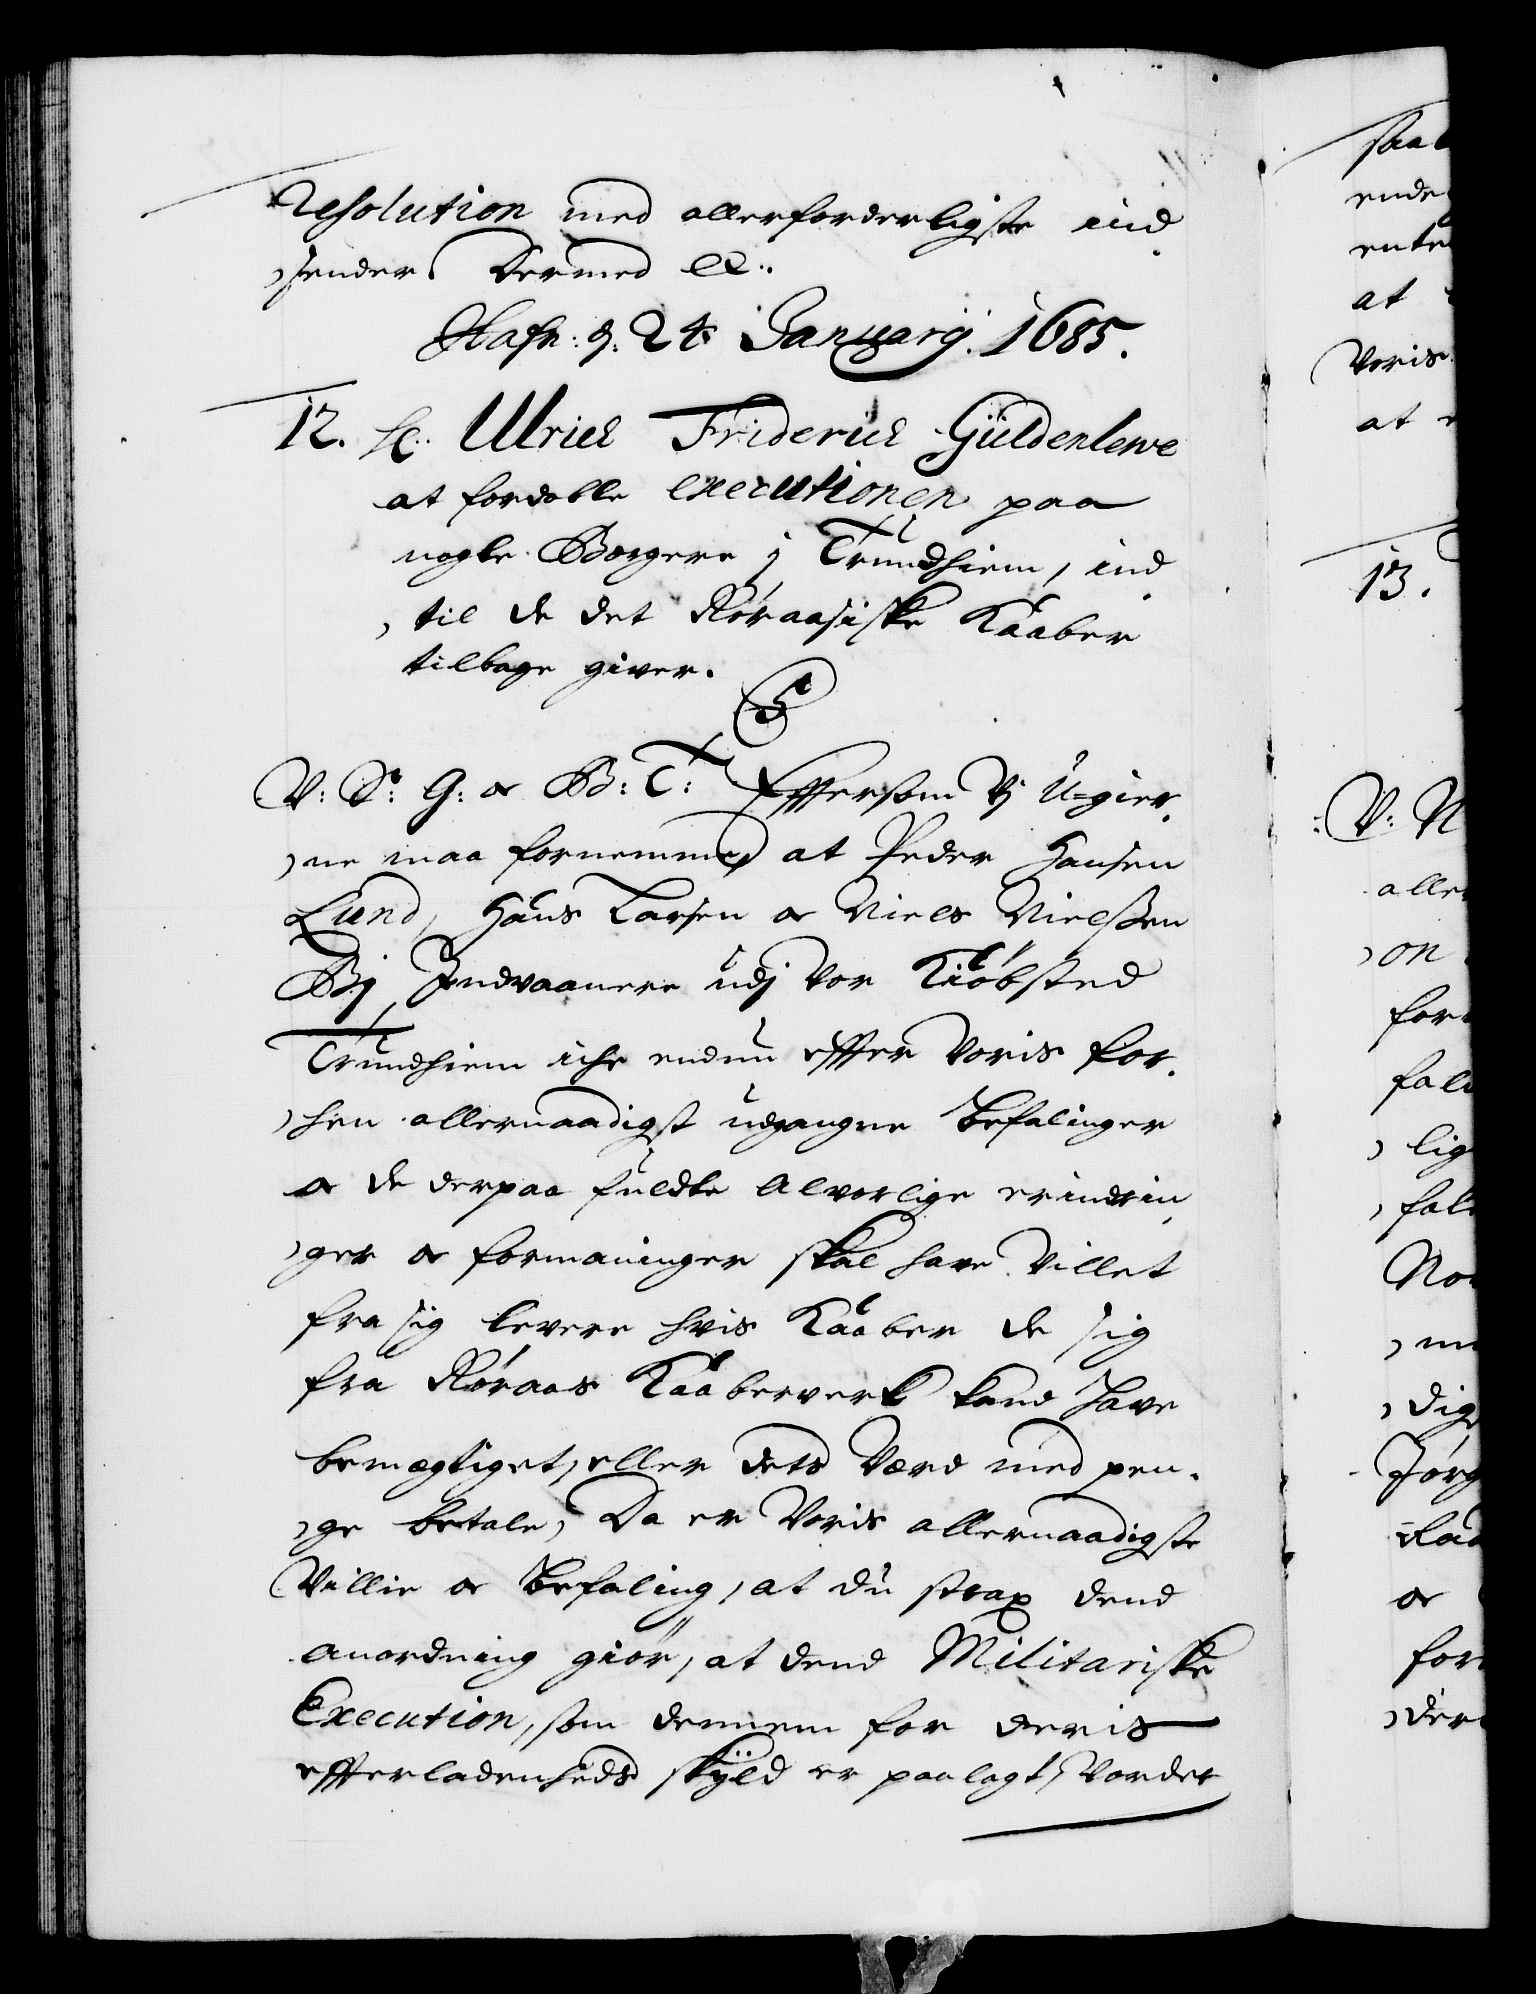 Resolution med allerforderligste ind
sender. Dermed etc.
Hafn: d: 24 Januarij. 1685.
12. H: Ulrich Friderich Güldenlewe
at fordoble executionen paa
nogle Borgere j Trundhiem, ind
til de det Röraasiske Kaaber
tilbage giver.
V: S: G: oc B: T: Effersom Vj U-gier,
ne maa fornemme, at Peder Hansen
Lund, Hans Larsen oc Niels Nielssen
Bÿ Indvaanere udj Vor Kiöbsted
Trundhiem iche endnu effter Voris for,
hen allernaadigst udgangne Befalinger
oc de derpaa fuldte Alvorlige erindrin,
ger oc formaninger skal have Villet
fra sig levere hvis Kaaber de sig
fra Röraas Kaaberverk kand have
bemægtiget, eller dets Værd med pen,
ge betale, Da er Voris allernaadigste
Villie oc Befaling, at du strax dend
anordning giör, at dend Militariske
Execution, som dennem for deris
effterladenheds skÿld er paalagt, Vorder
saa
ende
ente
at
Voris
at
13.
V: N
aller
on
for
fal
lig
fal
Nor
dig
Jörg
oc
for
der